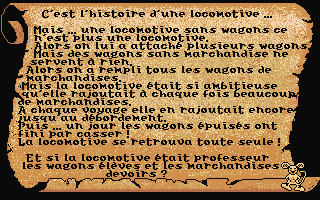 C'est l'histoire d'une locomotive ...
Mais ... une locomotive sans wagons ce
n'est plus une locomotive.
Alors on lui a attaché plusieurs wagons.
Mais des wagons sans marchandise ne
servent à rien.
Alors on a rempli tous les wagons de
marchandises.
Mais la locomotive était si ambitieuse
qu'elle rajoutait à chaque fois beaucoup
de marchandises.
A chaque voyage elle en rajoutait encore
jusqu'au débordement.
Puis ... un jour les wagons épuisés ont
fini par casser !
La locomotive se retrouva toute seule !
Et si la locomotive était professeur
les wagons élèves et les marchandises
devoirs ?